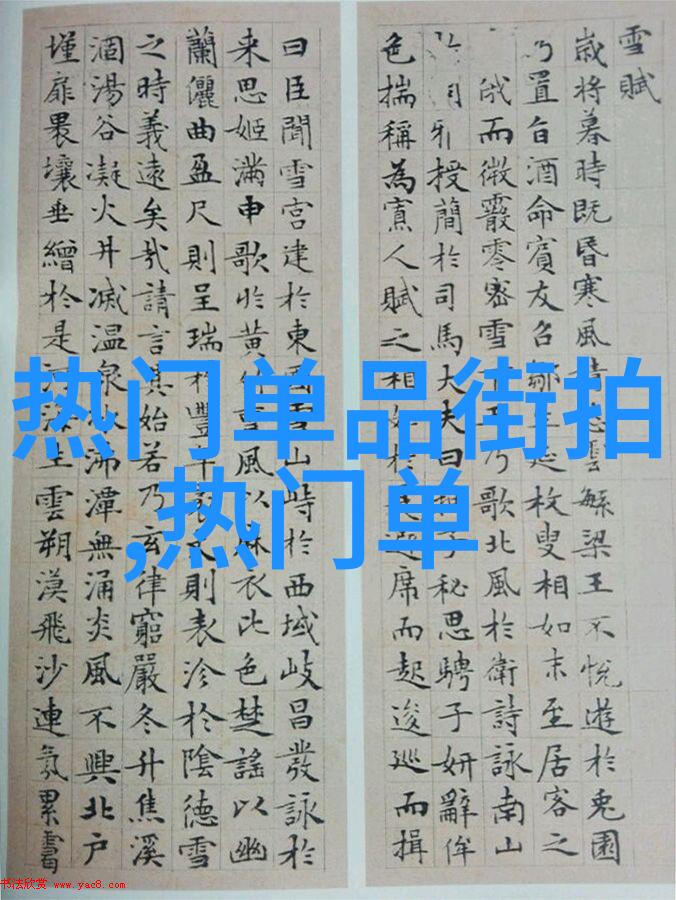 雪賦
歲將暮時既昏寒風 雲繁梁王不悅遊於兎園
乃置旨酒命賓友召鄒生延枚叟相如末至居客之
俄而微霰零密雪 乃歌北風於衛詩詠南山
授簡於司馬大夫曰 子秘思騁子妍辭侔
色揣稱為寡人賦之相如於是避席而起逡巡而揖
曰臣聞雪宮建於東國雪山峙於西域岐昌發詠於
来思姬滿申歌於黄 風以麻衣比色楚謠以幽
蘭儷曲盈尺則呈瑞於豐年袤丈則表沴於陰德雪
之時義遠矣哉請言其始若乃玄律窮嚴冬升焦溪
涸湯谷凝火井滅温泉冰沸潭無涌炎風不興北户
墐扉裸壤垂繒於是河海生雲朔漠飛沙連氛累靄
热门单品街拍
,热门单
书法欣赏 www.yac8.com